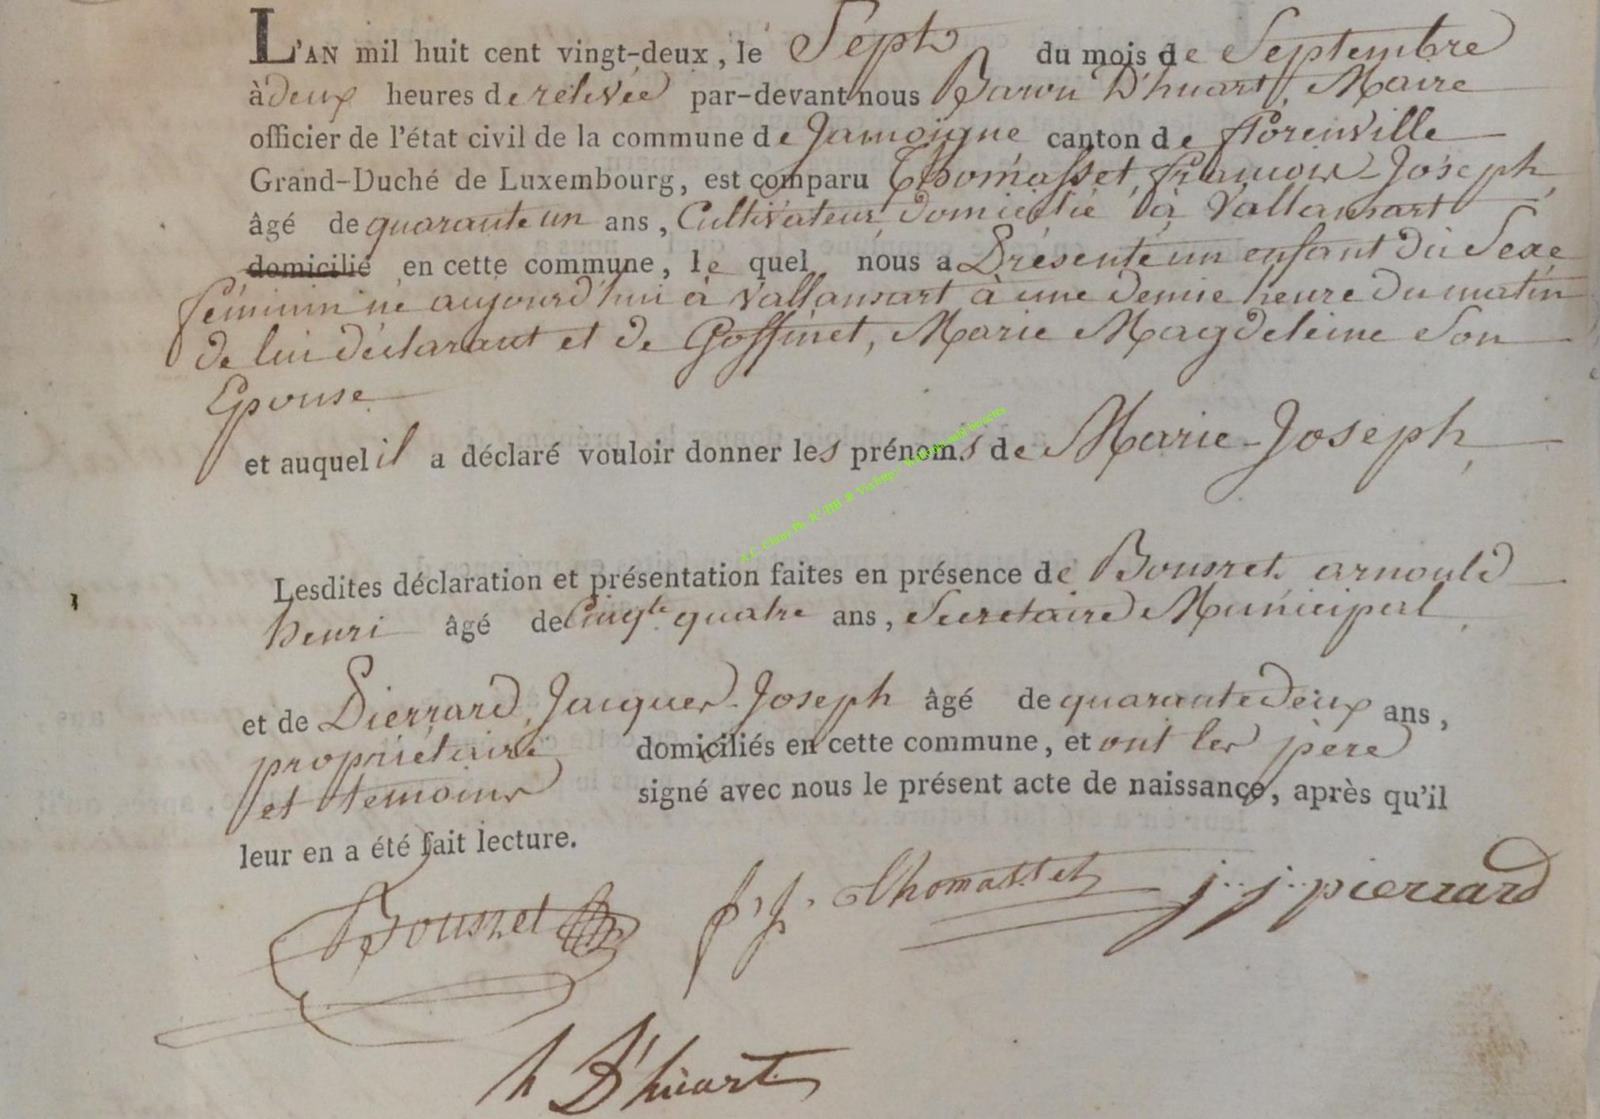 L'AN mil huit cent vingt-deux, le Sept du mois de Septembre
à deux heures de relivée par-devant nous Baron D'huart, Maire
officier de l'état civil de la commune de Jamoigne canton de florenville
Grand-Duché de Luxembourg, est comparu Thomasset, francois-Joseph,
âgé de quarante un ans, Cultivateur, domicilié à Vallansart
domicilié en cette commune, le quel nous a Présenté un enfant du Sexe
féminin né aujourd'hui à Vallansart à une demie heure du matin
de lui déclarant et de Goffinet, Marie Magdeleine Son
Epouse
et auquel il a déclaré vouloir donner les prénoms de Marie-Joseph,
Lesdites déclaration et présentation faites en présence de Bousret, arnould
henri âgé de Cinqte quatre ans, Secretaire Municipal,
et de Pierrard, Jacques-Joseph âgé de quarante deux ans,
propriétaire domiciliés en cette commune, et ont les père
et temoins signé avec nous le présent acte de naissance, après qu'il
leur en a été fait lecture.
Bousret f. j. Thomasset j. j. pierrard
h D'huart